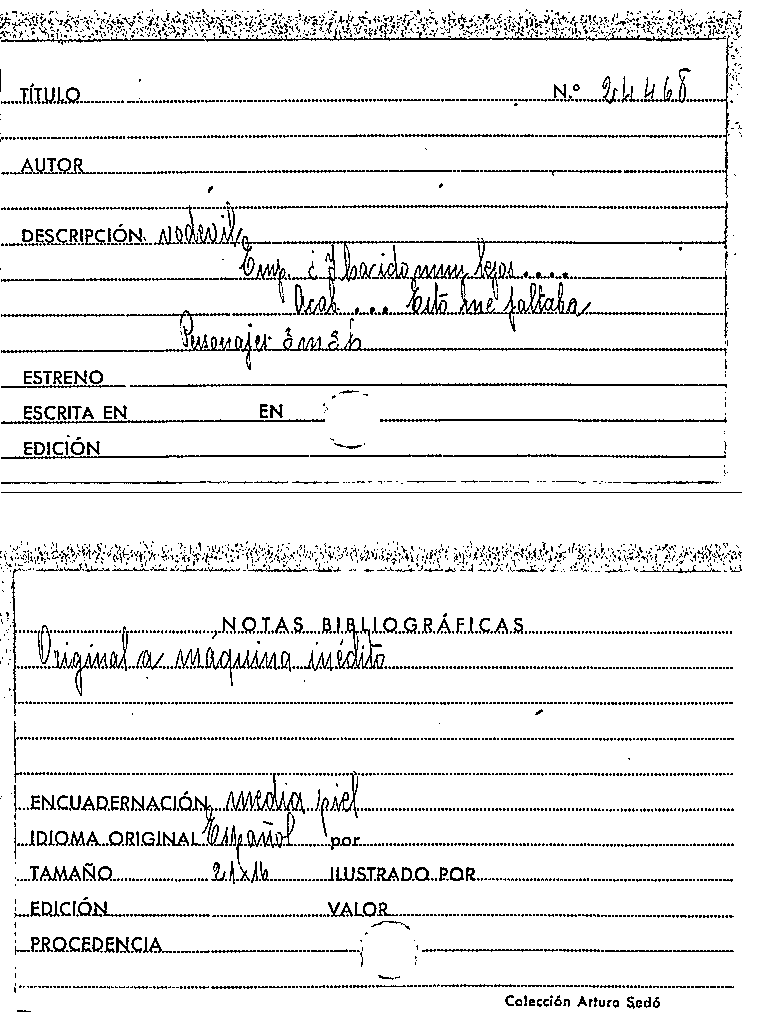 TÍTULO N.º 24468
AUTOR
DESCRIPCIÓN vodevil
Emp. ¿Y ha cido muy lejos ....
Acab ... Esto me faltaba
Personajes 3 m 3 h
ESTRENO
ESCRITA EN EN
EDICIÓN
NOTAS BIBLIOGRÁFICAS
Original a máquina inédito
ENCUADERNACIÓN media piel
IDIOMA ORIGINAL Español por
TAMAÑO 21x16 ILUSTRADO POR
EDICIÓN VALOR
PROCEDENCIA
Colección Arturo Sedó